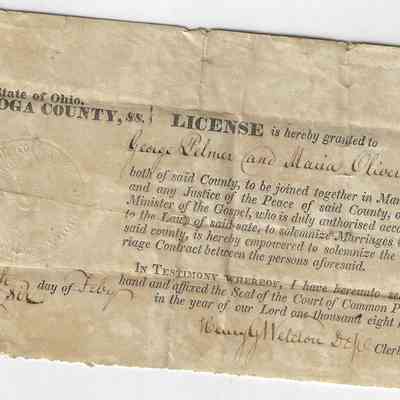 State of Ohio.
OGA COUNTY, ss. } LICENSE is hereby granted to
George Pelmer and Maria Oliver
both of said County, to be joined together in Mar
and any Justice of the Peace of said County, o
Minister of the Gospel, who is duly authorised acco
to the Laws of said sate, to solemnize Marriages
said county, is hereby empowered to solemnize the
riage Contract between the persons aforesaid.
IN TESTIMONY WHEREOF, I have hereunto se
day of Feby hand and affixed the Seal of the Court of Common P
in the year of our Lord one thousand eight
Henry G Weldon Dep Clerk